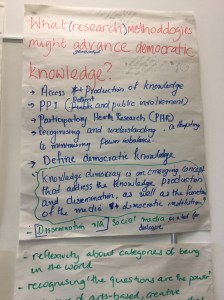 What (research) methodologies
might advance democratic
knowledge?
→ Access Production of knowledge
→ PPI (Patient and public involvement)
→ Participatory Health Research (PHR)
→ Recognising and understanding
& minimising power imbalances
→ Define democratic knowledge
"Knowledge democracy is an emerging concept
that address the knowledge production
and dissemination, as well as the functions
of the media democratic institutions"
- Dissemination social media as tool for
dialogue
- reflexivity about categories of being
in the world
- recognising 'the questions are the power'
of arts-based, creative